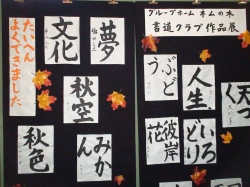 グループホーム ネムの木
書道クラブ作品展
たいへん
よくできました
夢
文化
秋空
みかん
秋色
ぶどう
人生
天
彼岸花
いろどり